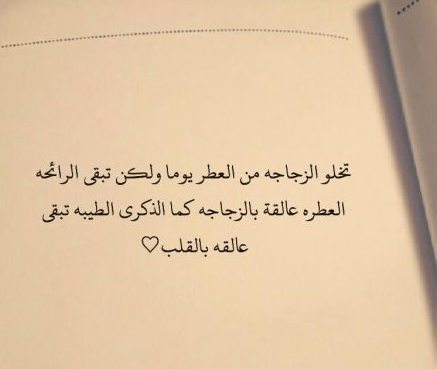 تخلو الزجاجه من العطر يوما ولكن تبقى الرائحه
العطره عالقة بالزجاجه كما الذكرى الطيبه تبقى
عالقه بالقلب♡